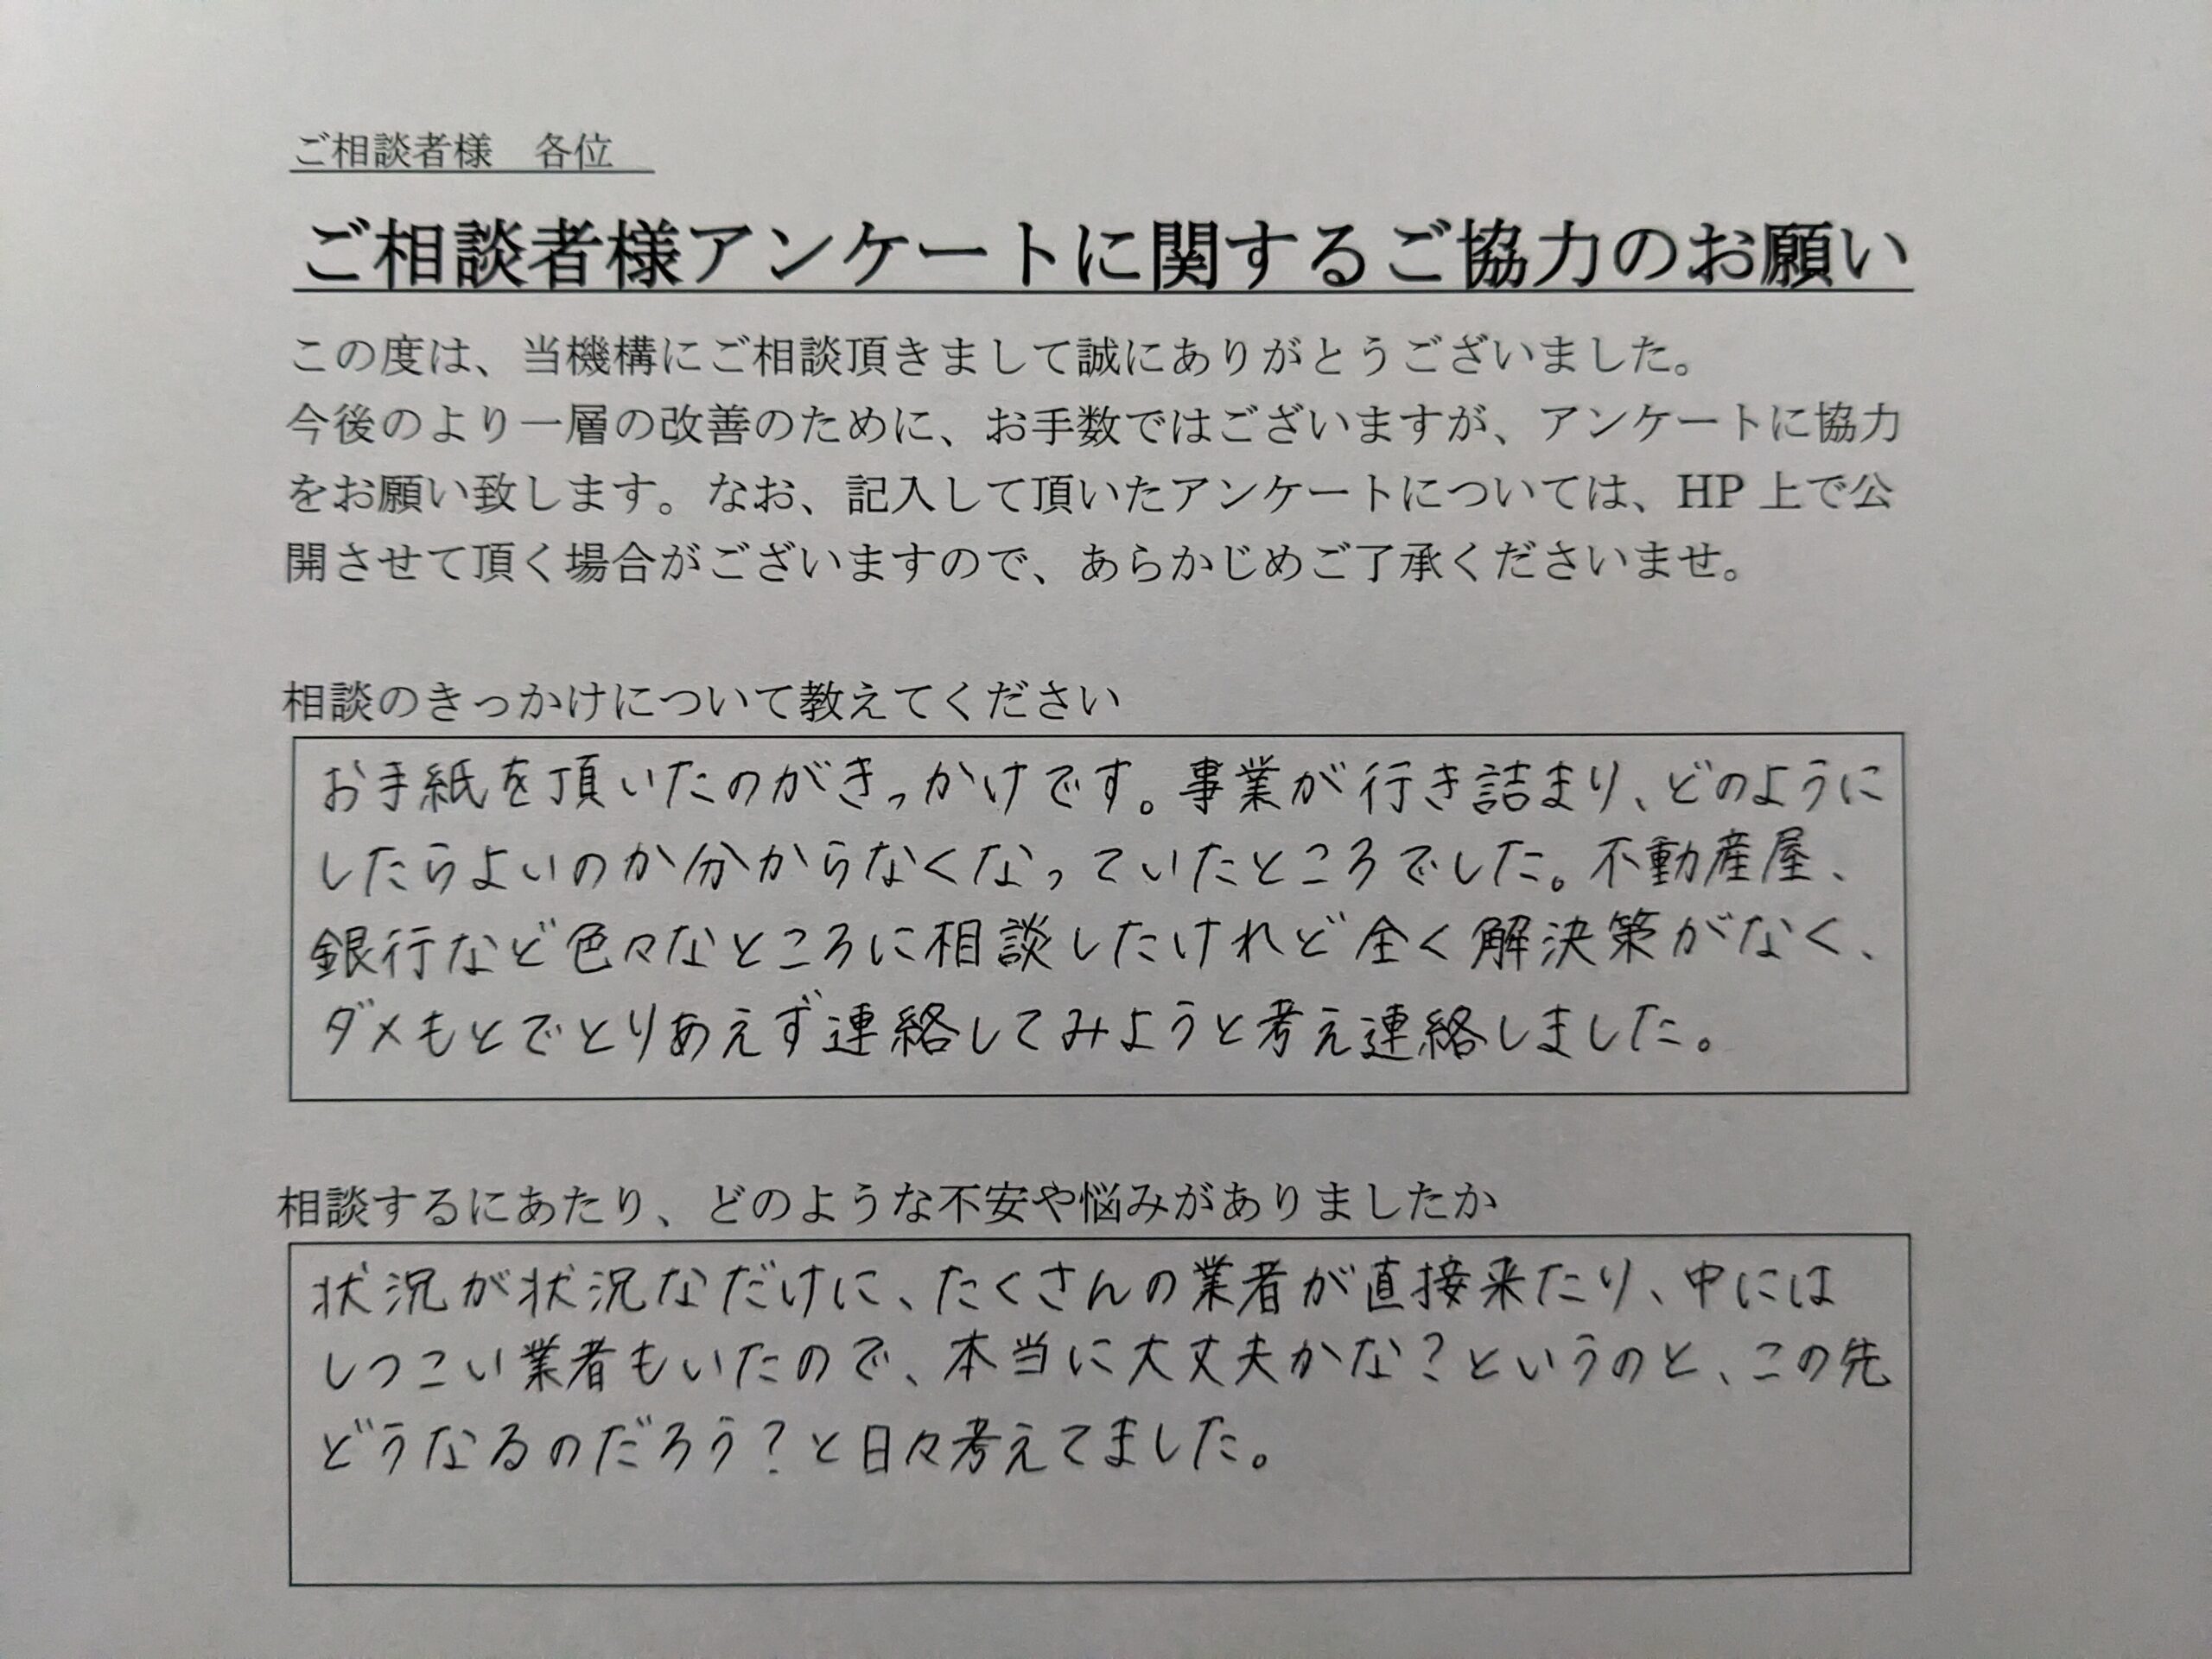 ご相談者様　各位
ご相談者様アンケートに関するご協力のお願い
この度は、当機構にご相談頂きまして誠にありがとうございました。
今後のより一層の改善のために、お手数ではございますが、アンケートに協力
をお願い致します。なお、記入して頂いたアンケートについては、HP 上で公
開させて頂く場合がございますので、あらかじめご了承くださいませ。
相談のきっかけについて教えてください
お手紙を頂いたのがきっかけです。事業が行き詰まり、どのように
したらよいのか分からなくなっていたところでした。不動産屋、
銀行など色々なところに相談したけれど全く解決策がなく、
ダメもとでとりあえず連絡してみようと考え連絡しました。
相談するにあたり、どのような不安や悩みがありましたか
状況が状況なだけに、たくさんの業者が直接来たり、中には
しつこい業者もいたので、本当に大丈夫かな？というのと、この先
どうなるのだろう？と日々考えてました。